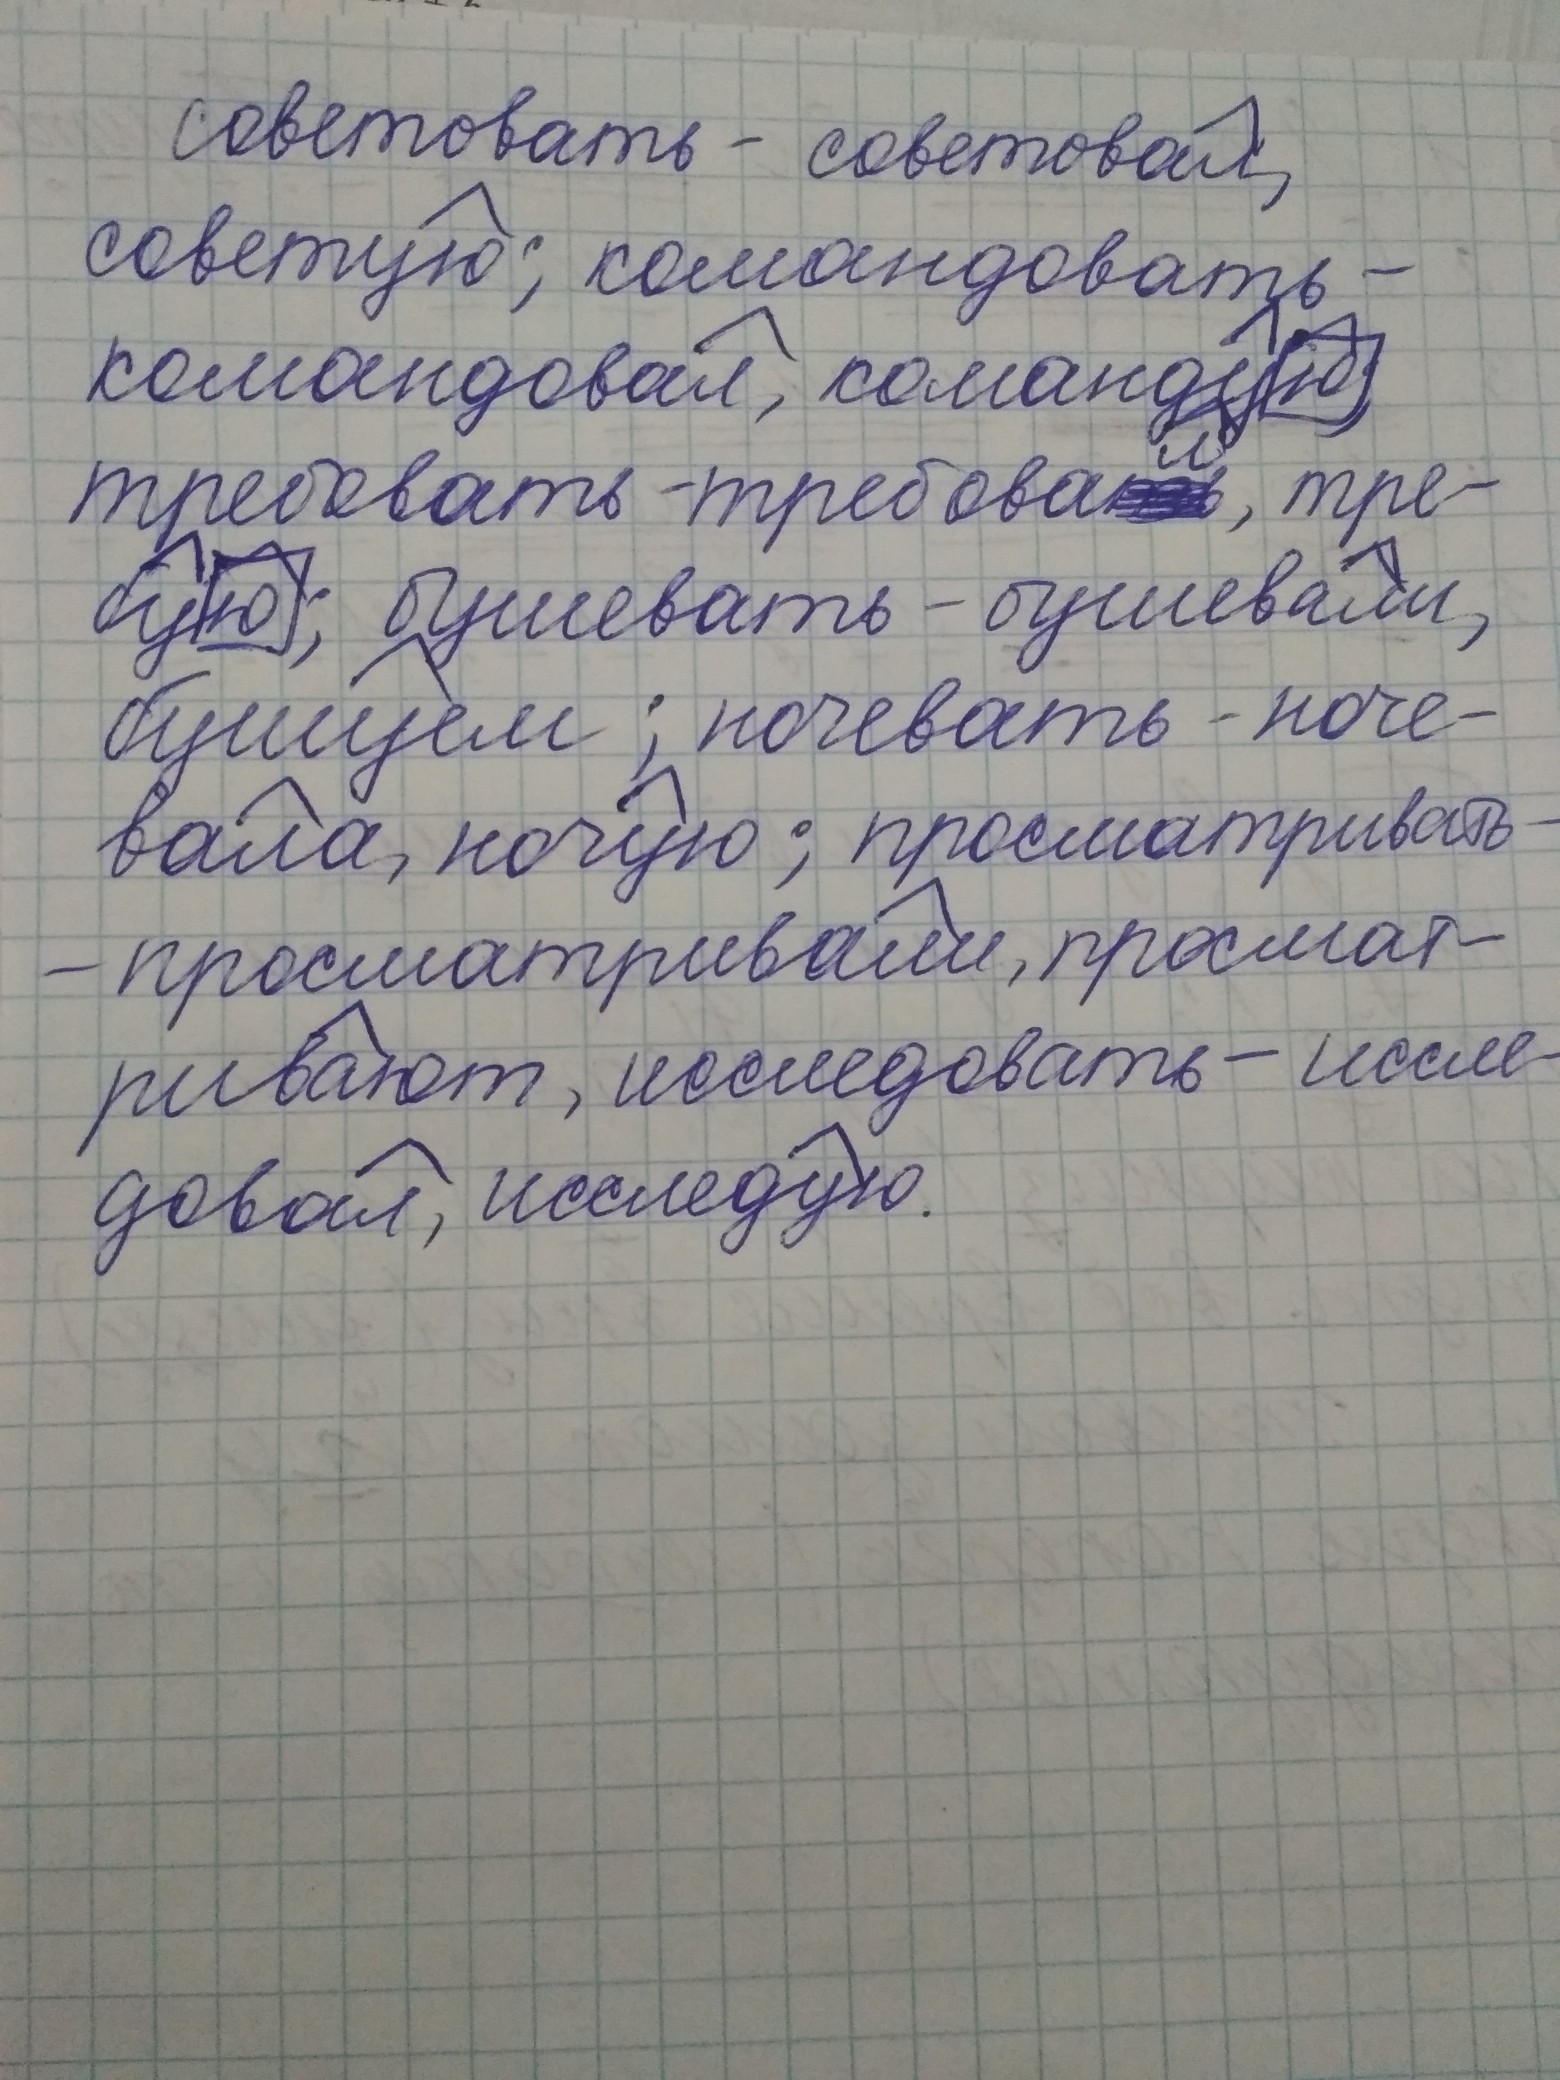 советовать - советовал,
советую; командовать -
командовал, командую;
требовать - требовал, тре-
бую; бушевать - бушевали,
бушуем; ночевать - ноче-
вала, ночую; просматривать -
- просматривали, просмат-
ривают, исследовать - иссле-
довал, исследую.